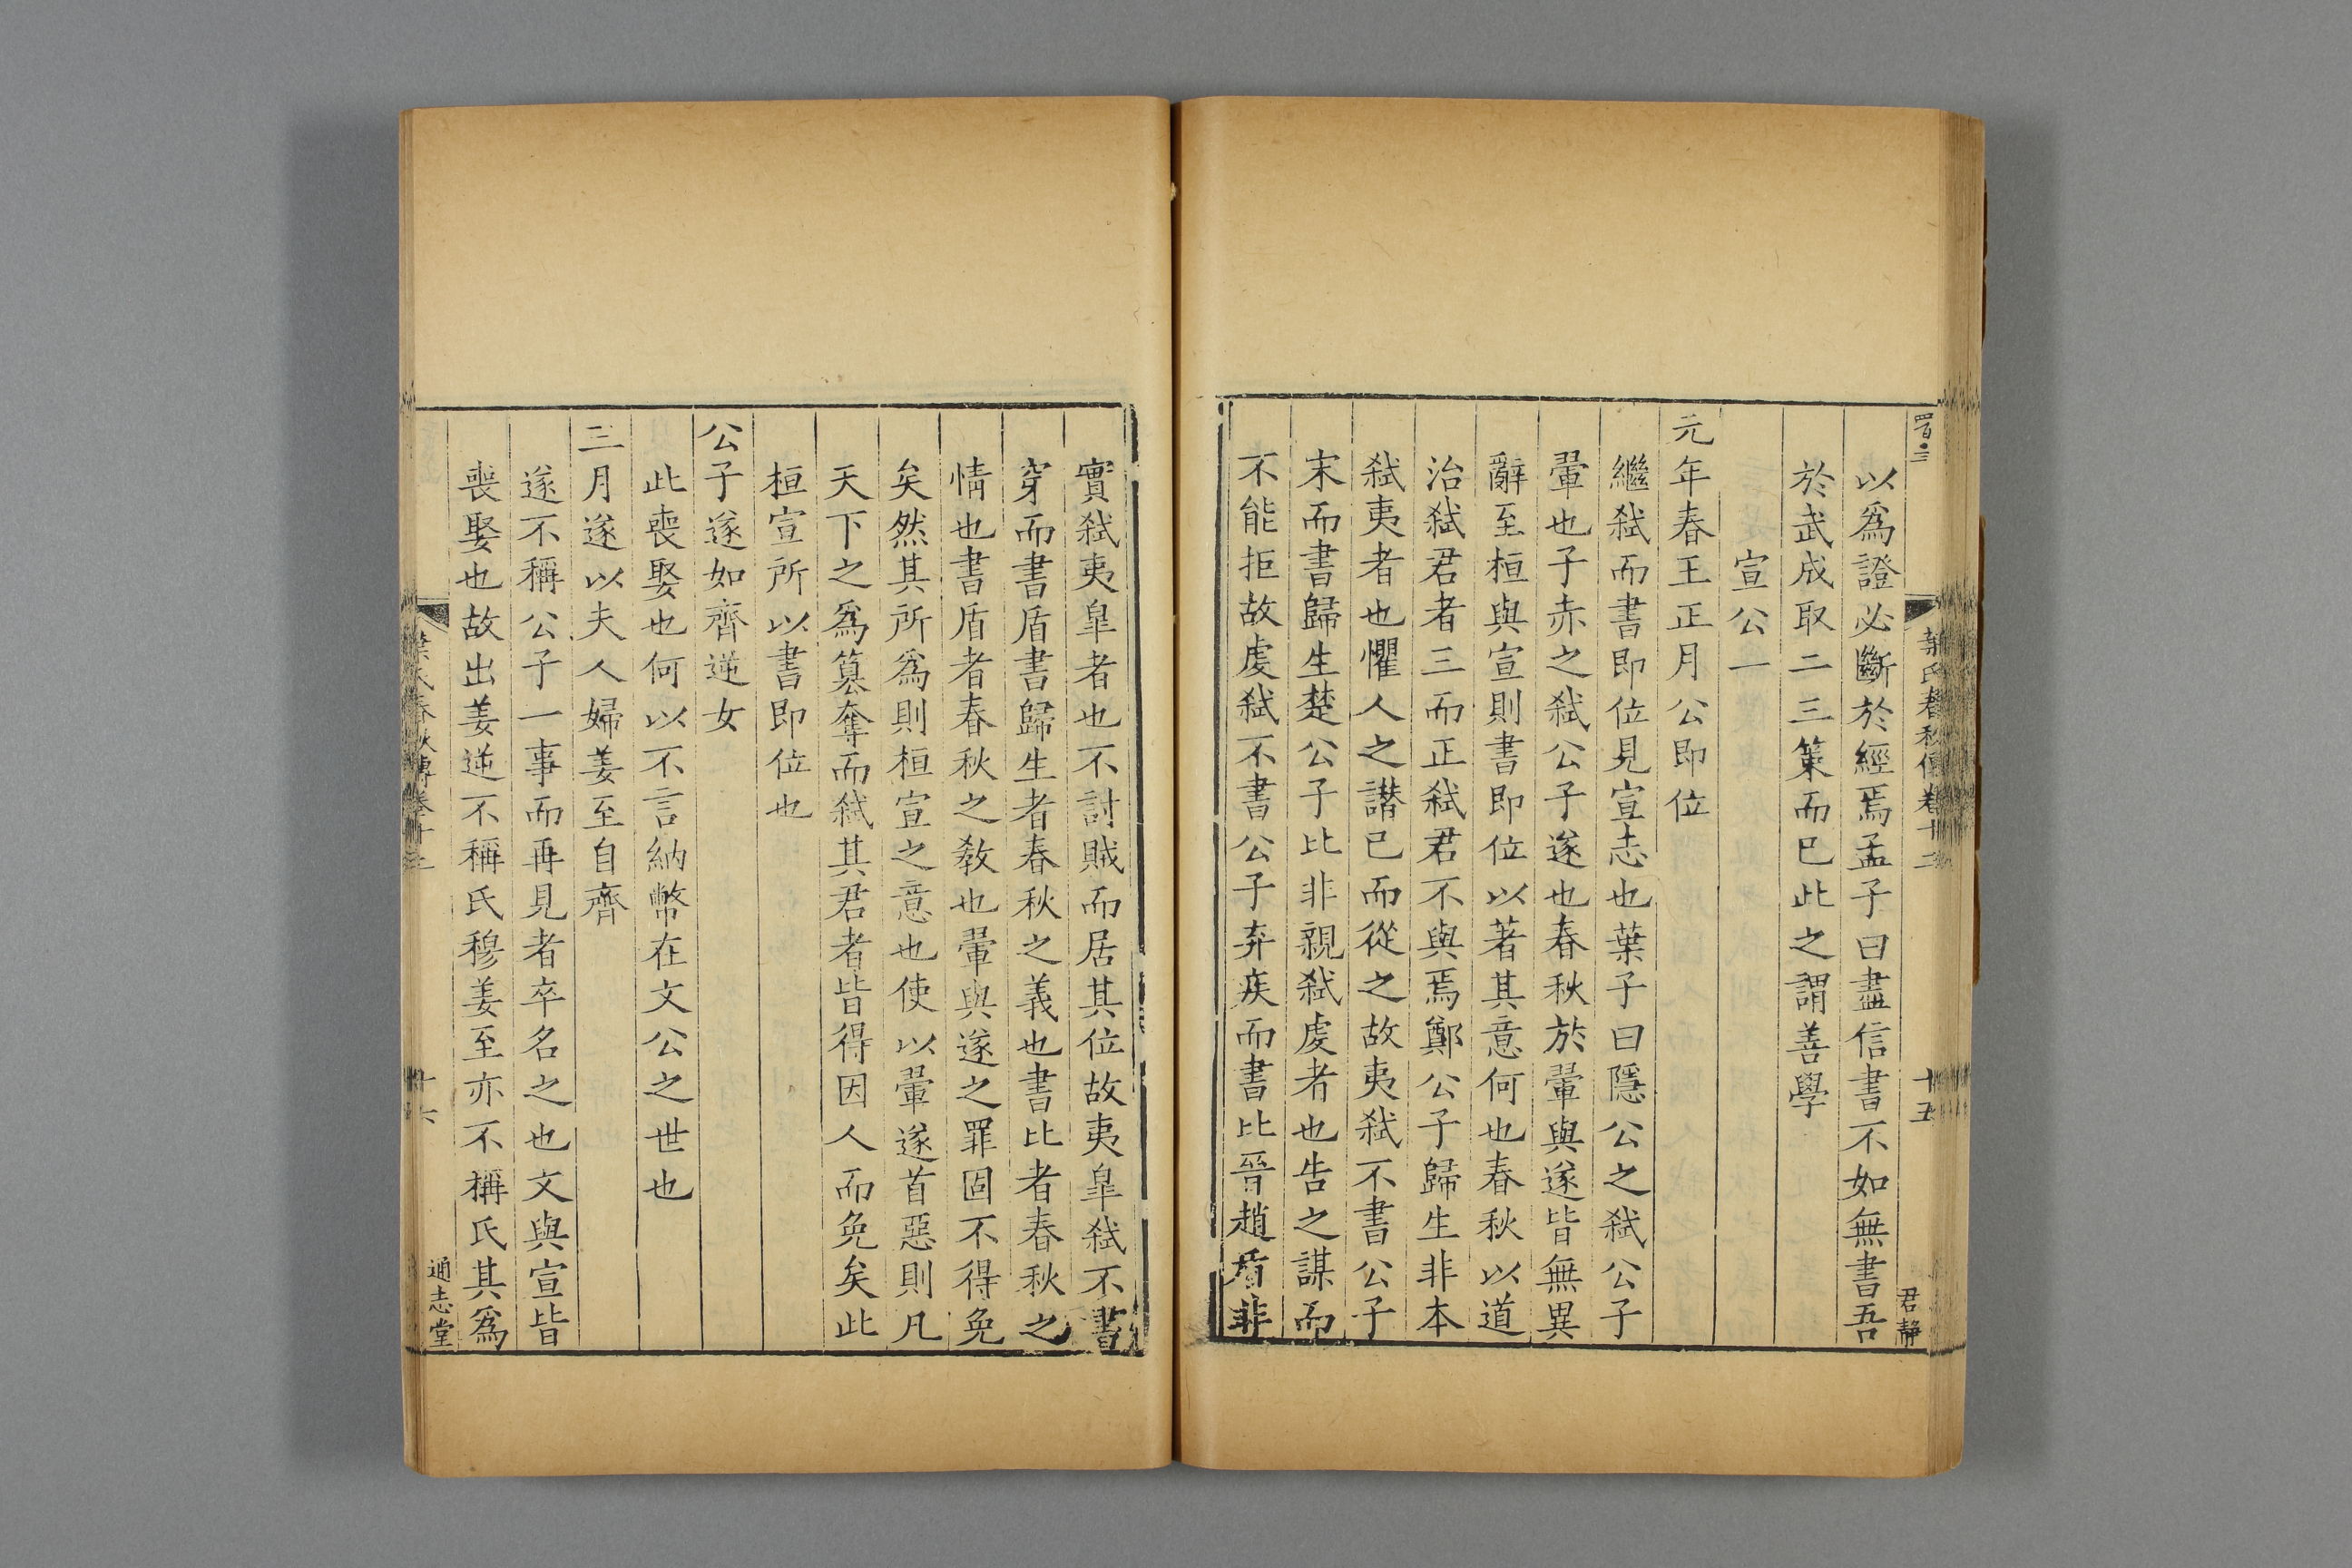 四百三
葉氏春秋傳卷十二
十五
君靜
以為證必斷於經焉孟子曰盡信書不如無書吾
於武成取二三策而已此之謂善學
宣公一
元年春王正月公即位
繼弒而書即位見宣志也葉子曰隱公之弒公子
翬也子赤之弒公子遂也春秋於翬與遂皆無異
辭至桓與宣則書即位以著其意何也春秋以道
治弒君者三而正弒君不與焉鄭公子歸生非本
弒夷者也懼人之譖已而從之故夷弒不書公子
末而書歸生楚公子比非親弒虔者也告之謀而
不能拒故虔弒不書公子弃疾而書比晉趙盾非
實弒夷皐者也不討賊而居其位故夷皐弒不書
穿而書盾書歸生者春秋之義也書比者春秋之
情也書盾者春秋之敎也翬與遂之罪固不得免
矣然其所為則桓宣之意也使以翬遂首惡則凡
天下之為篡奪而弒其君者皆得因人而免矣此
桓宣所以書即位也
公子遂如齊逆女
此喪娶也何以不言納幣在文公之世也
三月遂以夫人婦姜至自齊
遂不稱公子一事而再見者卒名之也文與宣皆
喪娶也故出姜逆不稱氏穆姜至亦不稱氏其為
葉氏春秋傳卷十二
十六
通志堂